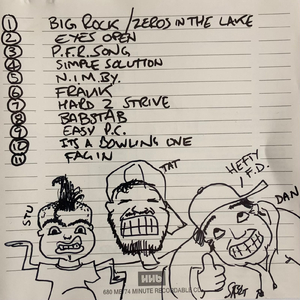 1 BIG ROCK/ZEROS IN THE LAKE
2 EYES OPEN
3 P.F.R. SONG
4 SIMPLE SOLUTION
5 N.I.M.B.Y.
6 FRANK
7 HARD 2 STRIVE
8 BABSTAB
9 EASY P.C.
10 ITS A BOWLING ONE
11 FAGIN
TAT
HEFTY
/ F.D.
STU
DAN
680 MB/74 MINUTE RECORDABLE